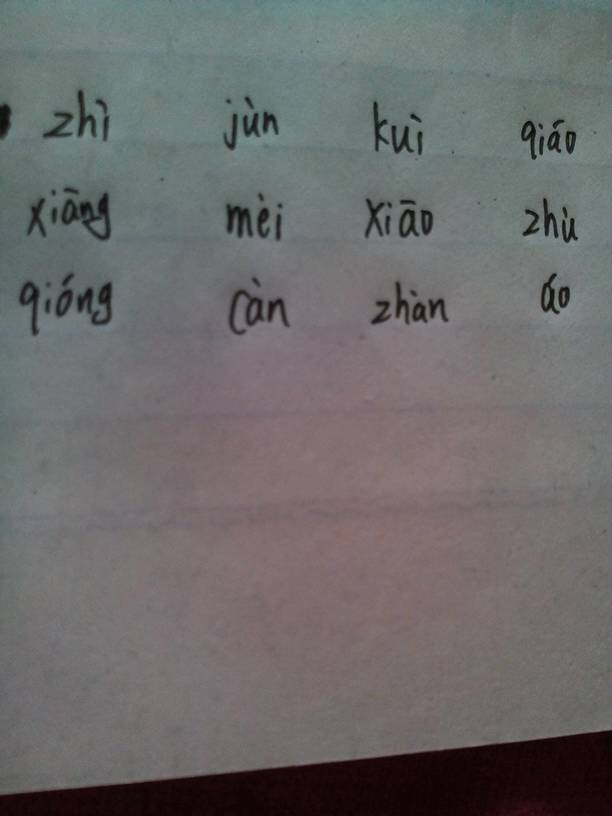 zhì jùn kuì qiáo
xiāng mèi xiāo zhù
qióng càn zhàn áo